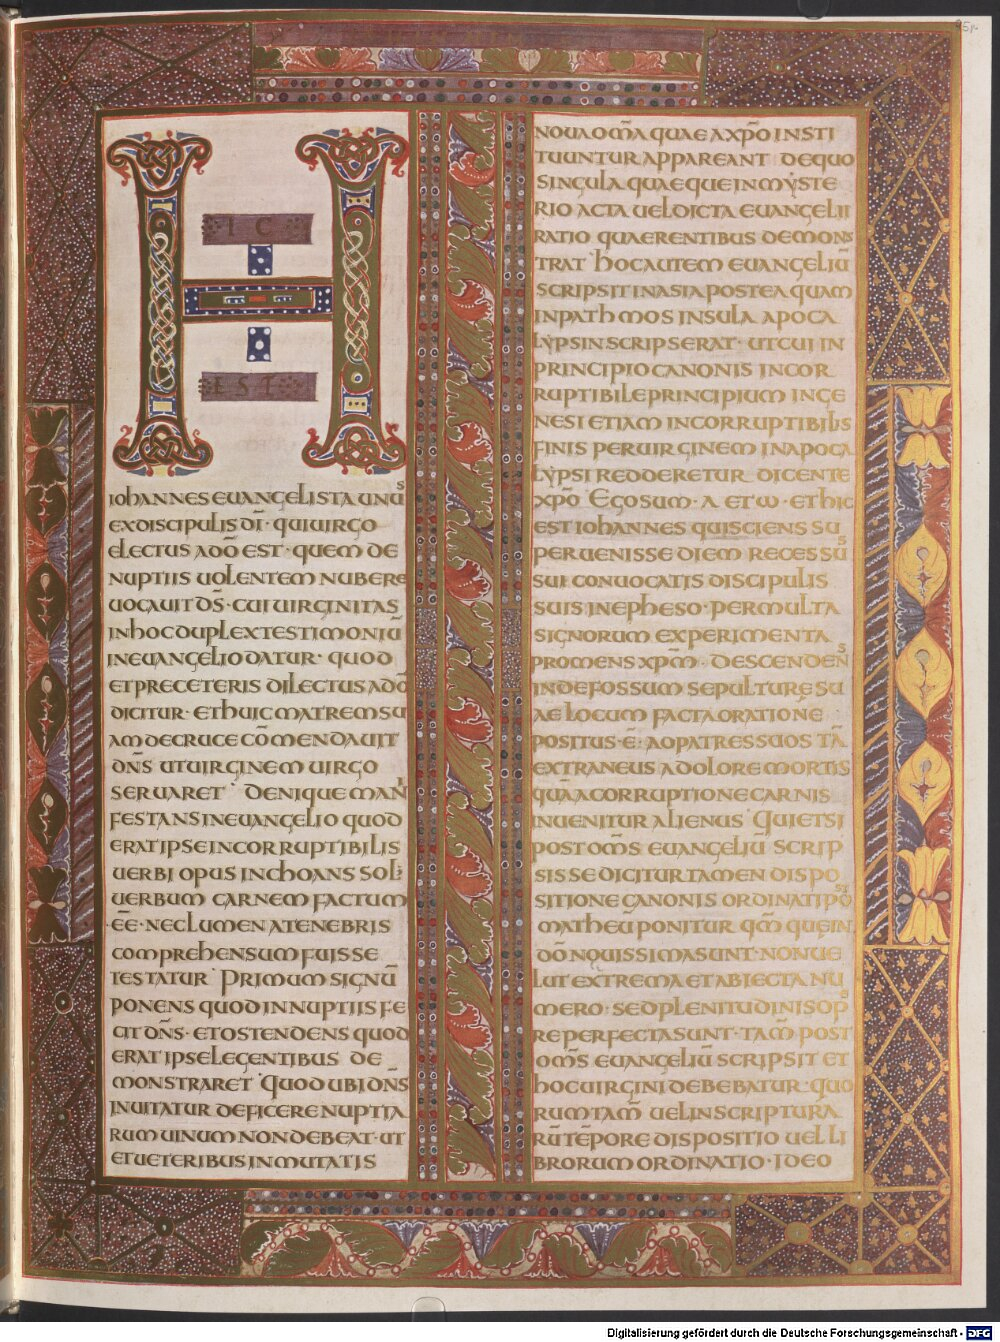 95r
H
IC
EST
IOHANNES EUANGELISTA UNUS
EX DISCIPULIS DĪ · QUI UIRGO
ELECTUS A DŌ EST · QUEM DE
NUPTIIS UOLENTEM NUBERE
UOCAUIT DŠ · CUI UIRGINITAS
IN HOC DUPLEX TESTIMONIŪ
IN EUANGELIO DATUR · QUOD
ET PRE CETERIS DILECTUS A DŌ
DICITUR · ET HUIC MATREM SU
AM DE CRUCE CŌMENDAUIT
DN̄S UT UIRGINEM UIRGO
SERUARET · DENIQUE MANI
FESTANS IN EUANGELIO QUOD
ERAT IPSE INCORRUPTIBILIS
UERBI OPUS INCHOANS SOL
UERBUM CARNEM FACTUM
EĒ · NEC LUMEN A TENEBRIS
COMPREHENSUM FUISSE
TESTATUR · PRIMUM SIGNŪ
PONENS QUOD IN NUPTIIS FE
CIT DN̄S · ET OSTENDENS QUOD
ERAT IPSE LEGENTIBUS DE
MONSTRARET · QUOD UBI DN̄S
INUITATUR DEFICERE NUPTIA
RUM UINUM NON DEBEAT · UT
ET UETERIBUS INMUTATIS
NOUA OM̄A QUAE A XP̄O INSTI
TUUNTUR APPAREANT DE QUO
SINGULA QUAEQUE IN MYSTE
RIO ACTA UEL DICTA EUANGELII
RATIO QUAERENTIBUS DEMONS
TRAT · HOC AUTEM EUANGELIŪ
SCRIPSIT IN ASIA POSTEA QUAM
IN PATHMOS INSULA APOCA
LYPSIN SCRIPSERAT · UT CUI IN
PRINCIPIO CANONIS INCOR
RUPTIBILE PRINCIPIUM IN GE
NESI ETIAM INCORRUPTIBILIS
FINIS PER UIRGINEM IN APOCA
LYPSI REDDERETUR DICENTE
XP̄O EGO SUM · A ET ω · ET HIC
EST IOHANNES QUI SCIENS SU
PERUENISSE DIEM RECESSUS
SUI · CONUOCATIS DISCIPULIS
SUIS IN EPHESO · PER MULTA
SIGNORUM EXPERIMENTA
PROMENS XP̄M · DESCENDENS
IN DEFOSSUM SEPULTURĘ SU
AE LOCUM FACTA ORATIONE
POSITUS · Ē · AD PATRES SUOS TĀ
EXTRANEUS A DOLORE MORTIS
QUĀ A CORRUPTIONE CARNIS
INUENITUR ALIENUS · QUI ETSI
POST OM̄S EUANGELIŪ SCRIP
SISSE DICITUR TAMEN DISPO
SITIONE CANONIS ORDINATI POST
MATHEŪ PONITUR QM̄ QUĘ IN
DŌ NOUISSIMA SUNT · NON UE
LUT EXTREMA ET ABIECTA NU
MERO · SED PLENITUDINIS OP
RE PERFECTA SUNT · TAM̄ POST
OM̄S EUANGELIŪ SCRIPSIT ET
HOC UIRGINI DEBEBATUR · QUO
RUM TAM̄ UEL IN SCRIPTURA
RŪ TĒPORE DISPOSITIO UEL LI
BRORUM ORDINATIO · IDEO
Digitalisierung gefördert durch die Deutsche Forschungsgemeinschaft - DFG